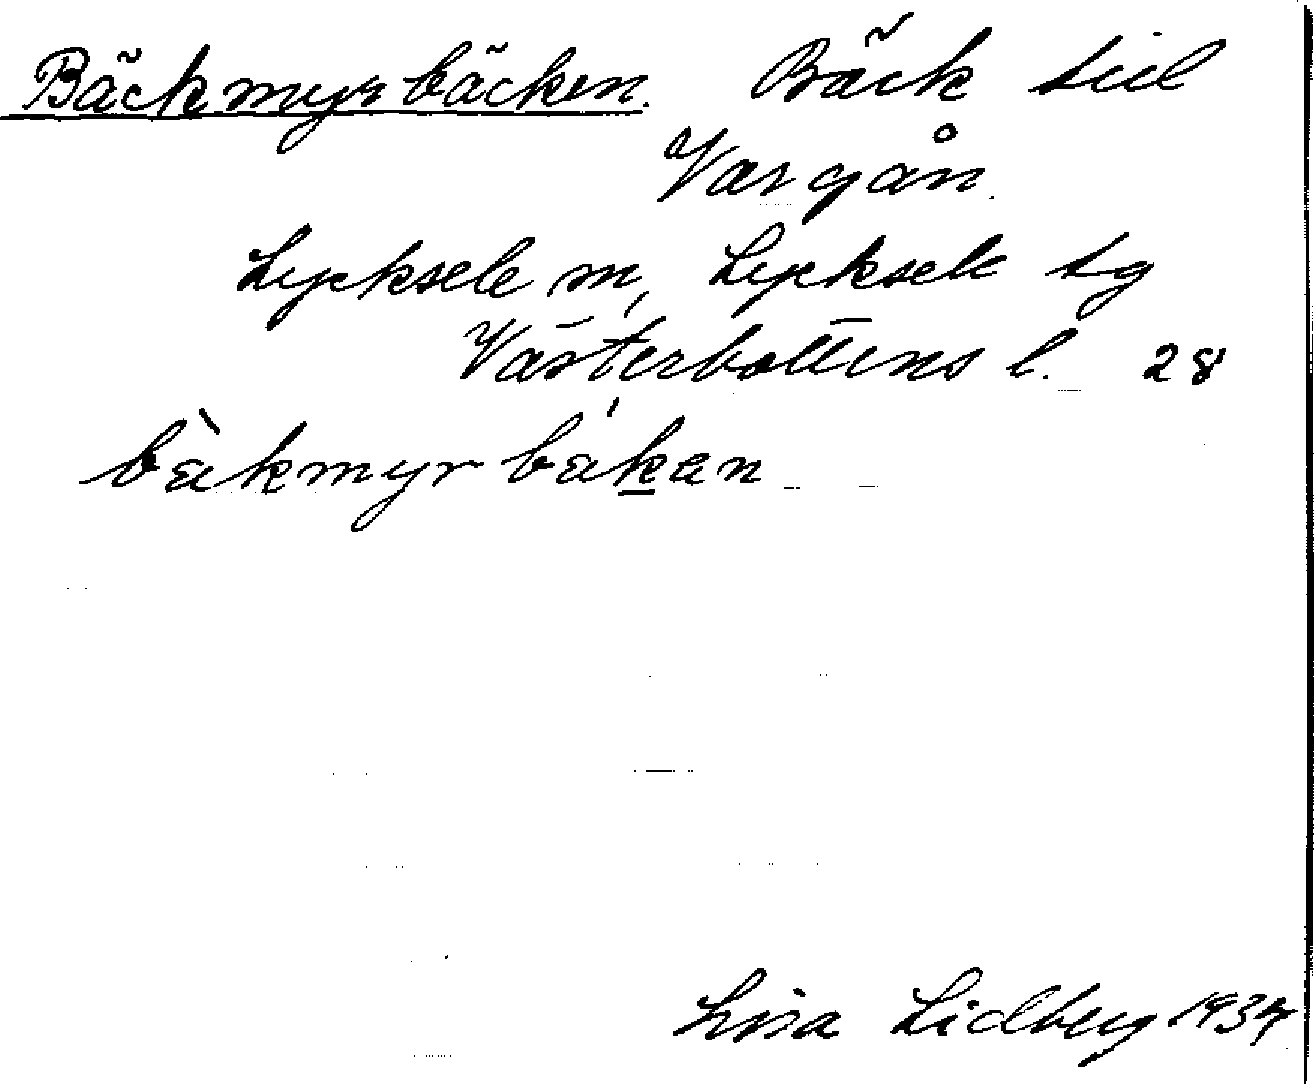 Bäckmyrbäcken. Bäck till
Vargån.
Lycksele m, Lycksele tg
Västerbottens l. 28
bàkmyrbákan
Lisa Lidberg 1934